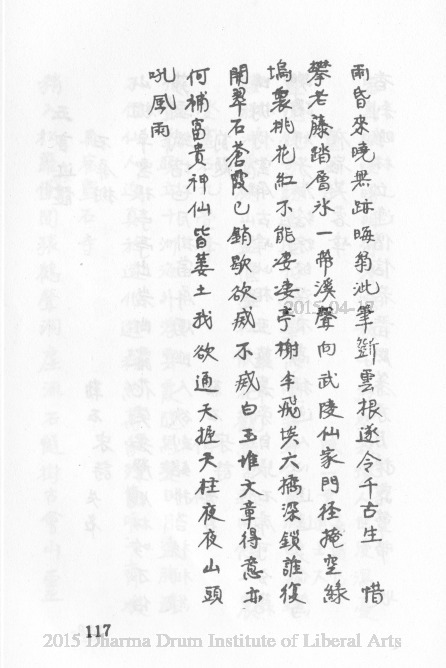 雨昏來曉無跡晦翁泚筆斵雲根遂令千古生　惜
攀老藤踏層氷一帶溪聲向武陵仙家門徑掩空綠
塢裏桃花紅不能凄凄亭榭半飛埃六橋深鎖誰復
開翠石蒼霞已銷歇欲感不感白玉堆文章得意亦
何補富貴神仙皆萋土我欲通天握天柱夜夜山頭
吼風雨
2015-04-17
117
2015 Dharma Drum Institute of Liberal Arts